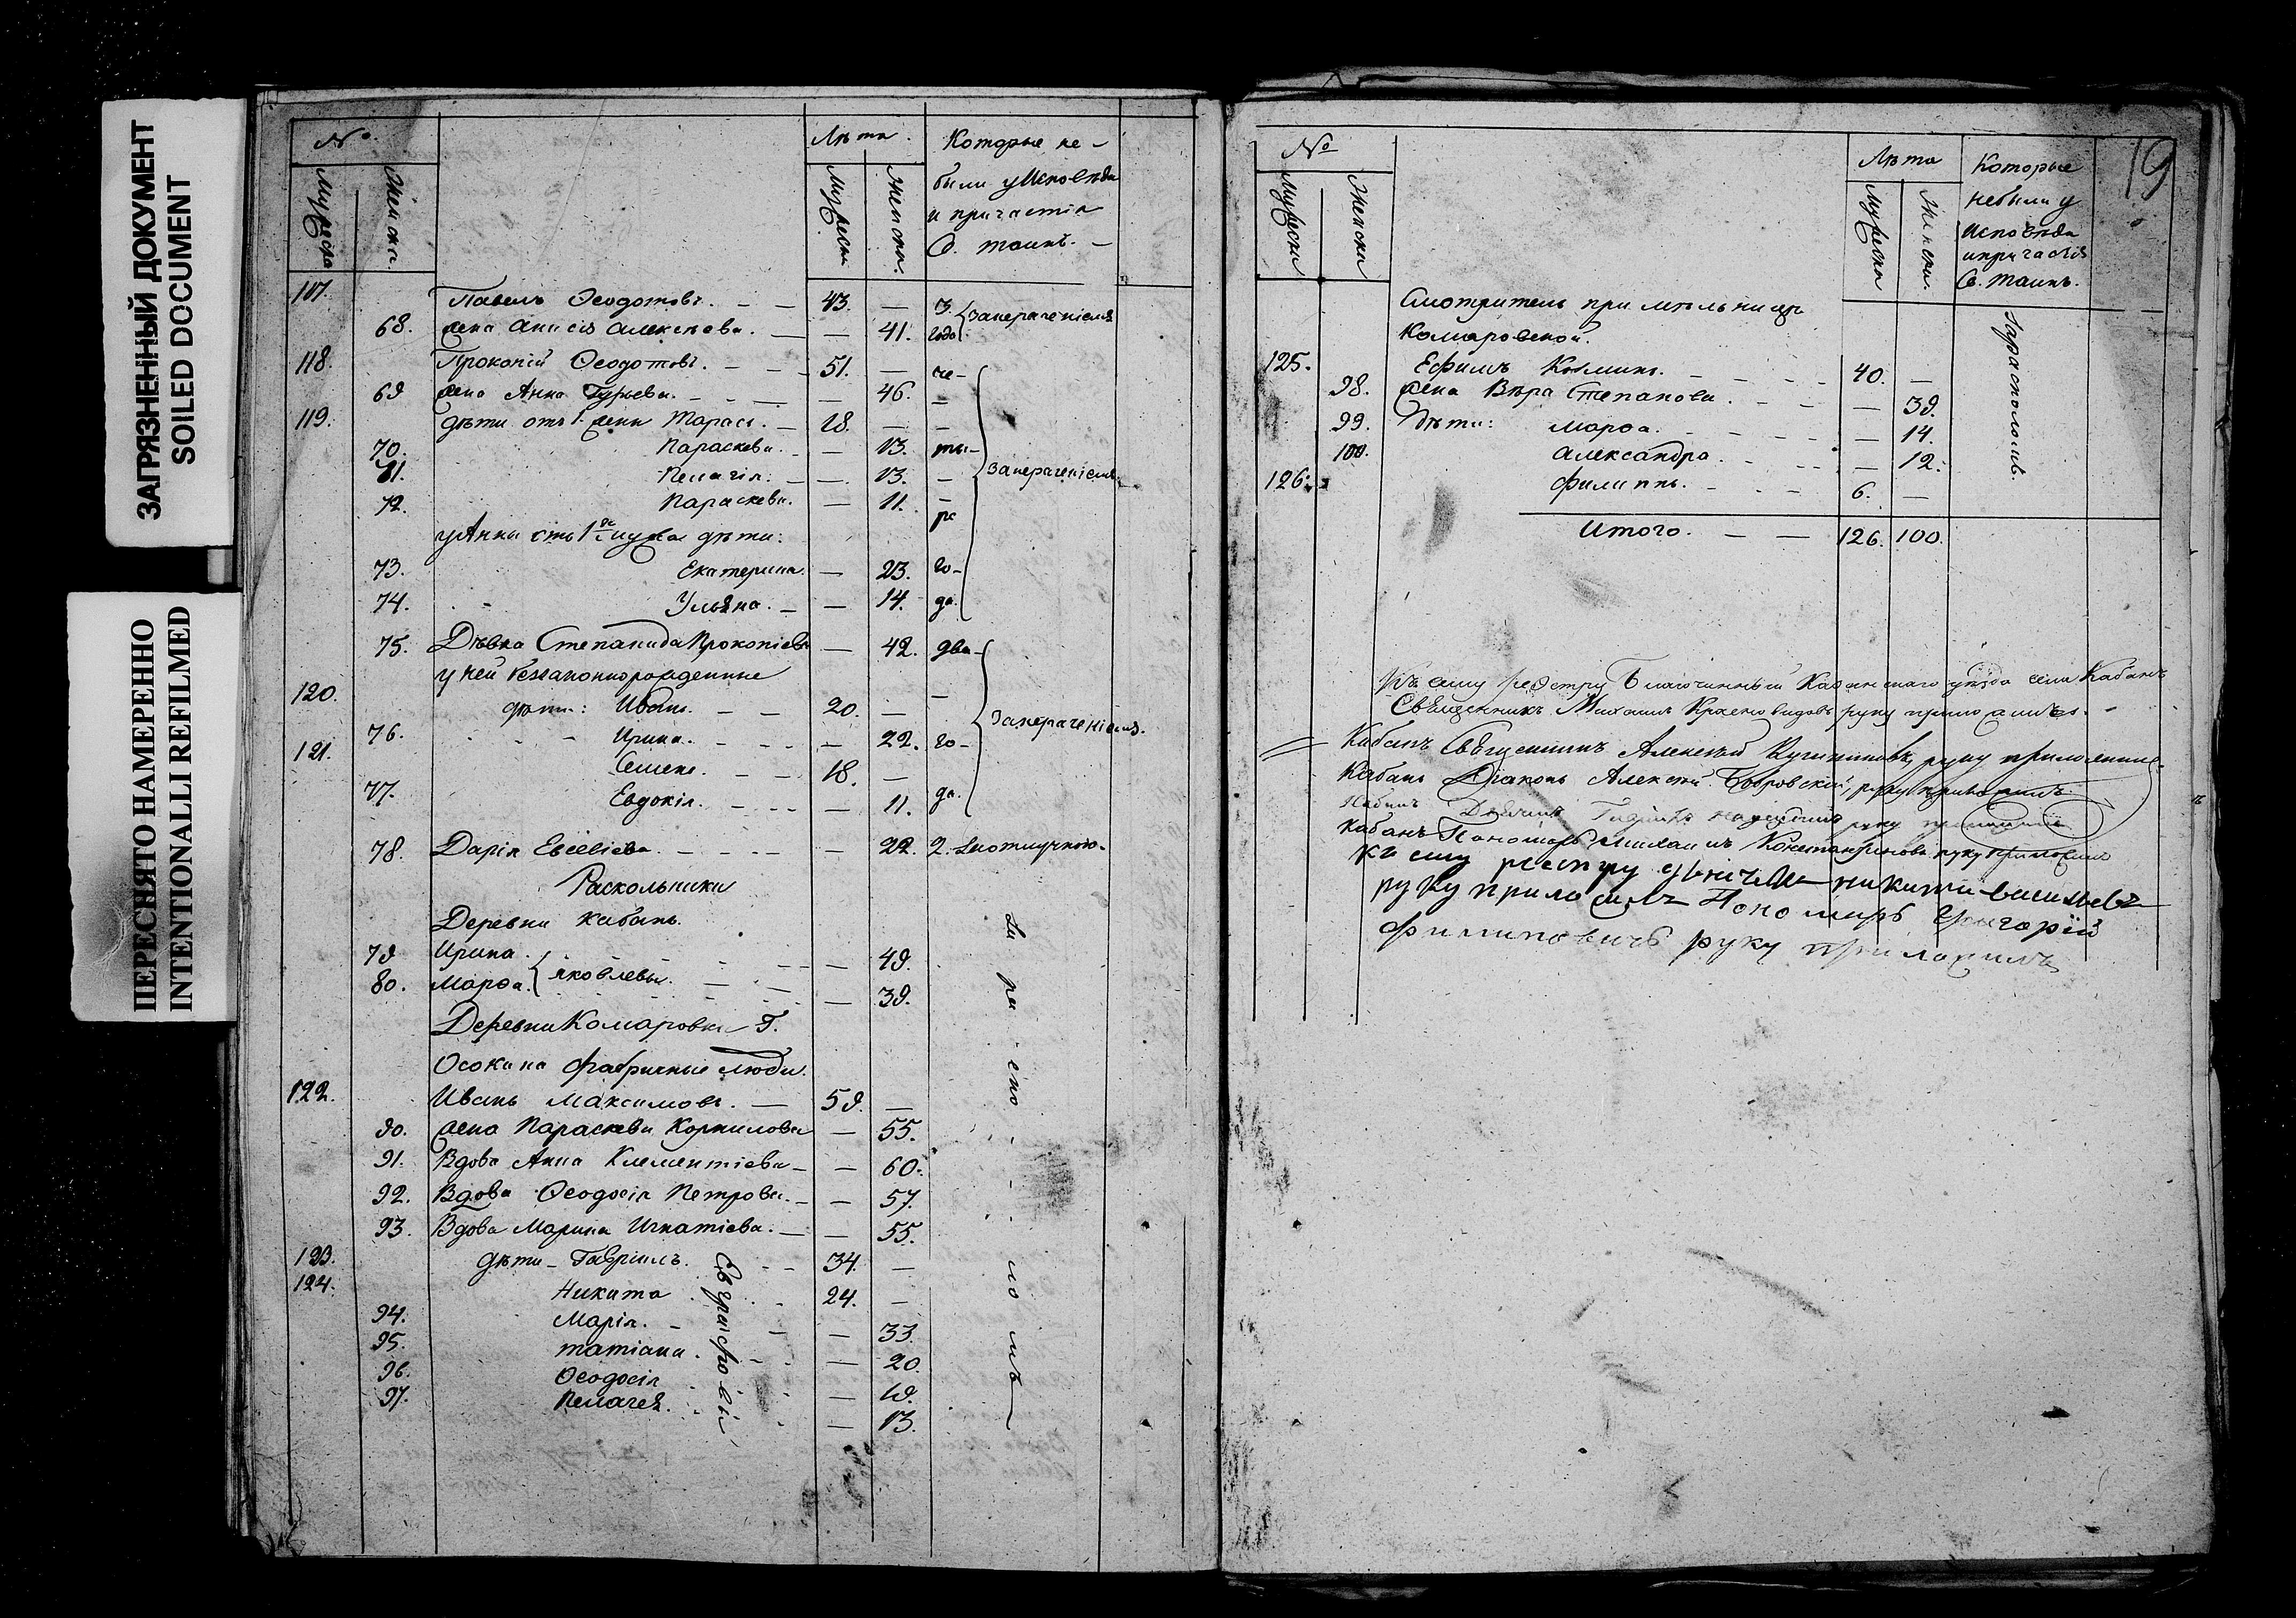 ЗАГРЯЗНЕННЫЙ ДОКУМЕНТ
SOILED DOCUMENT
ПЕРЕСНЯТО НАМЕРЕННО
INTENTIONALLI REFILMED
№ Лѣта. Которые не-
Мужеска Женска. Мужески Женски. были у Исповѣди
и причастія
С. таинъ. —
117. Павелъ Ѳеодотовъ. — 43. — 3. за нерачениемъ
68. жена Анисія Алексѣева. — 41. года
118. Прокопій Ѳеодотовъ. — 51. — че-
69 жена Анна Гурьева. — 46. —
119. дѣти отъ 1. жены Тарасъ. — 18. — —
70. Параскева. — 13. ты-
71. Пелагія. — 13. — за нерачениемъ
72. Параскева. — 11. ре
у Анны отъ 1го мужа дѣти:
73. Екатерина. — 23. го-
74. Ульяна. — 14. да.
75. Дѣвка Степанида Прокопіева — 42. два-
у ней беззаконнорожденные
120. дѣти: Иванъ. — 20. — за нерачениемъ.
76. Ирина. — 22. го-
121. Семенъ. — 18. —
77. Евдокія. — 11. да.
78. Дарія Евсевіева. — 22. 2. за отлучкою.
Раскольники
Деревни Кабанъ.
79 Ирина. — 49.
80. Марѳа. Яковлевы. — 39.
Деревни Комаровки Г.
Осокина фабричные люди.
122. Иванъ Максимовъ. — 59. —
90. жена Параскева Корнилова — 55.
91. Вдова Анна Клементіева — 60.
92. Вдова Ѳеодосія Петрова. — 57.
93. Вдова Марина Игнатіева. — 55.
123. дѣти — Гавріилъ. 34. —
124. Никита 24. —
94. Марія. — 33.
95. татіана. — 20.
96. Ѳеодосія — 19.
97. Пелагея. — 13.
За раско-ломъ
19
№ Лѣта Которые
Мужески Женски Мужески Женски. небыли у
Исповѣди
и причастія
Св. таинъ.
Смотритель при мельнице
Комаровской.
125. Ефимъ Козминъ. 40. —
98. жена Вѣра Степанова. — 39.
99. Дѣти: Марѳа. — 14.
100. Александра. — 12.
126. Филиппъ. 6. —
За расколомъ
Итого. — 126. 100.
Къ сему реэстру Благочинный Казанскаго уѣзда села Кабанъ
Священникъ Михаилъ руку приложилъ.
Кабанъ Священникъ Алексѣй руку приложилъ.
Кабанъ Діаконъ Алексѣй Бобровскій, руку приложилъ
Кабанъ Дьячекъ руку приложилъ
Кабанъ Пономарь Константиновъ руку приложилъ
Къ сему реэстру Никита Васильевъ
руку приложилъ Пономарь Григорій
Филиповичъ руку приложилъ